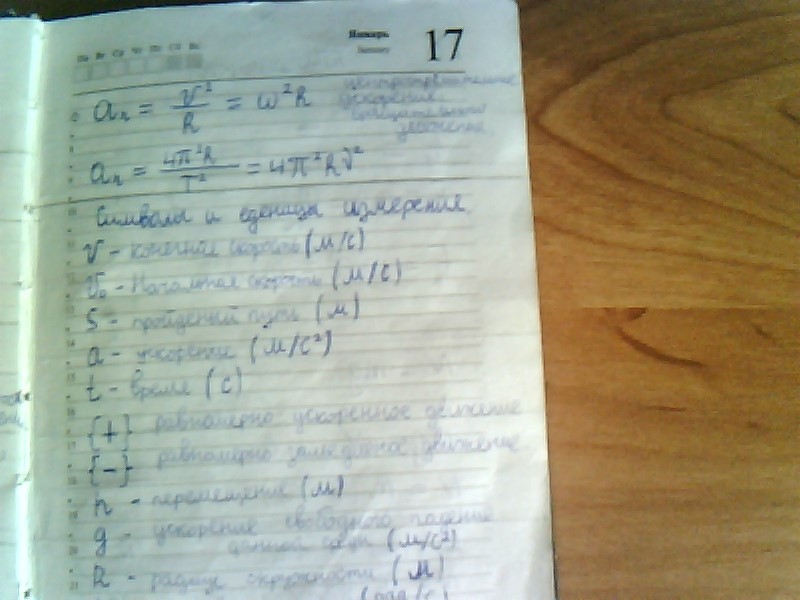 Январь 17
January
Пн Вт Ср Чт Пт Сб Вс
aₙ = v²/R = ω²R центростремительное
ускорение
вращательного
движения.
aₙ = 4π²R/T² = 4π²Rν²
Символы и еденицы измерения.
v - конечная скорость (м/с)
v₀ - Начальная скорость (м/с)
S - пройденый путь (м)
a - ускорение (м/с²)
t - время (с)
{+} равномерно ускоренное движение
{-} равномерно замедленое движение
h - перемещение (м)
g - ускорение свободного падения
данной среды (м/с²)
R - радиус окружности (м)
(рад/с)